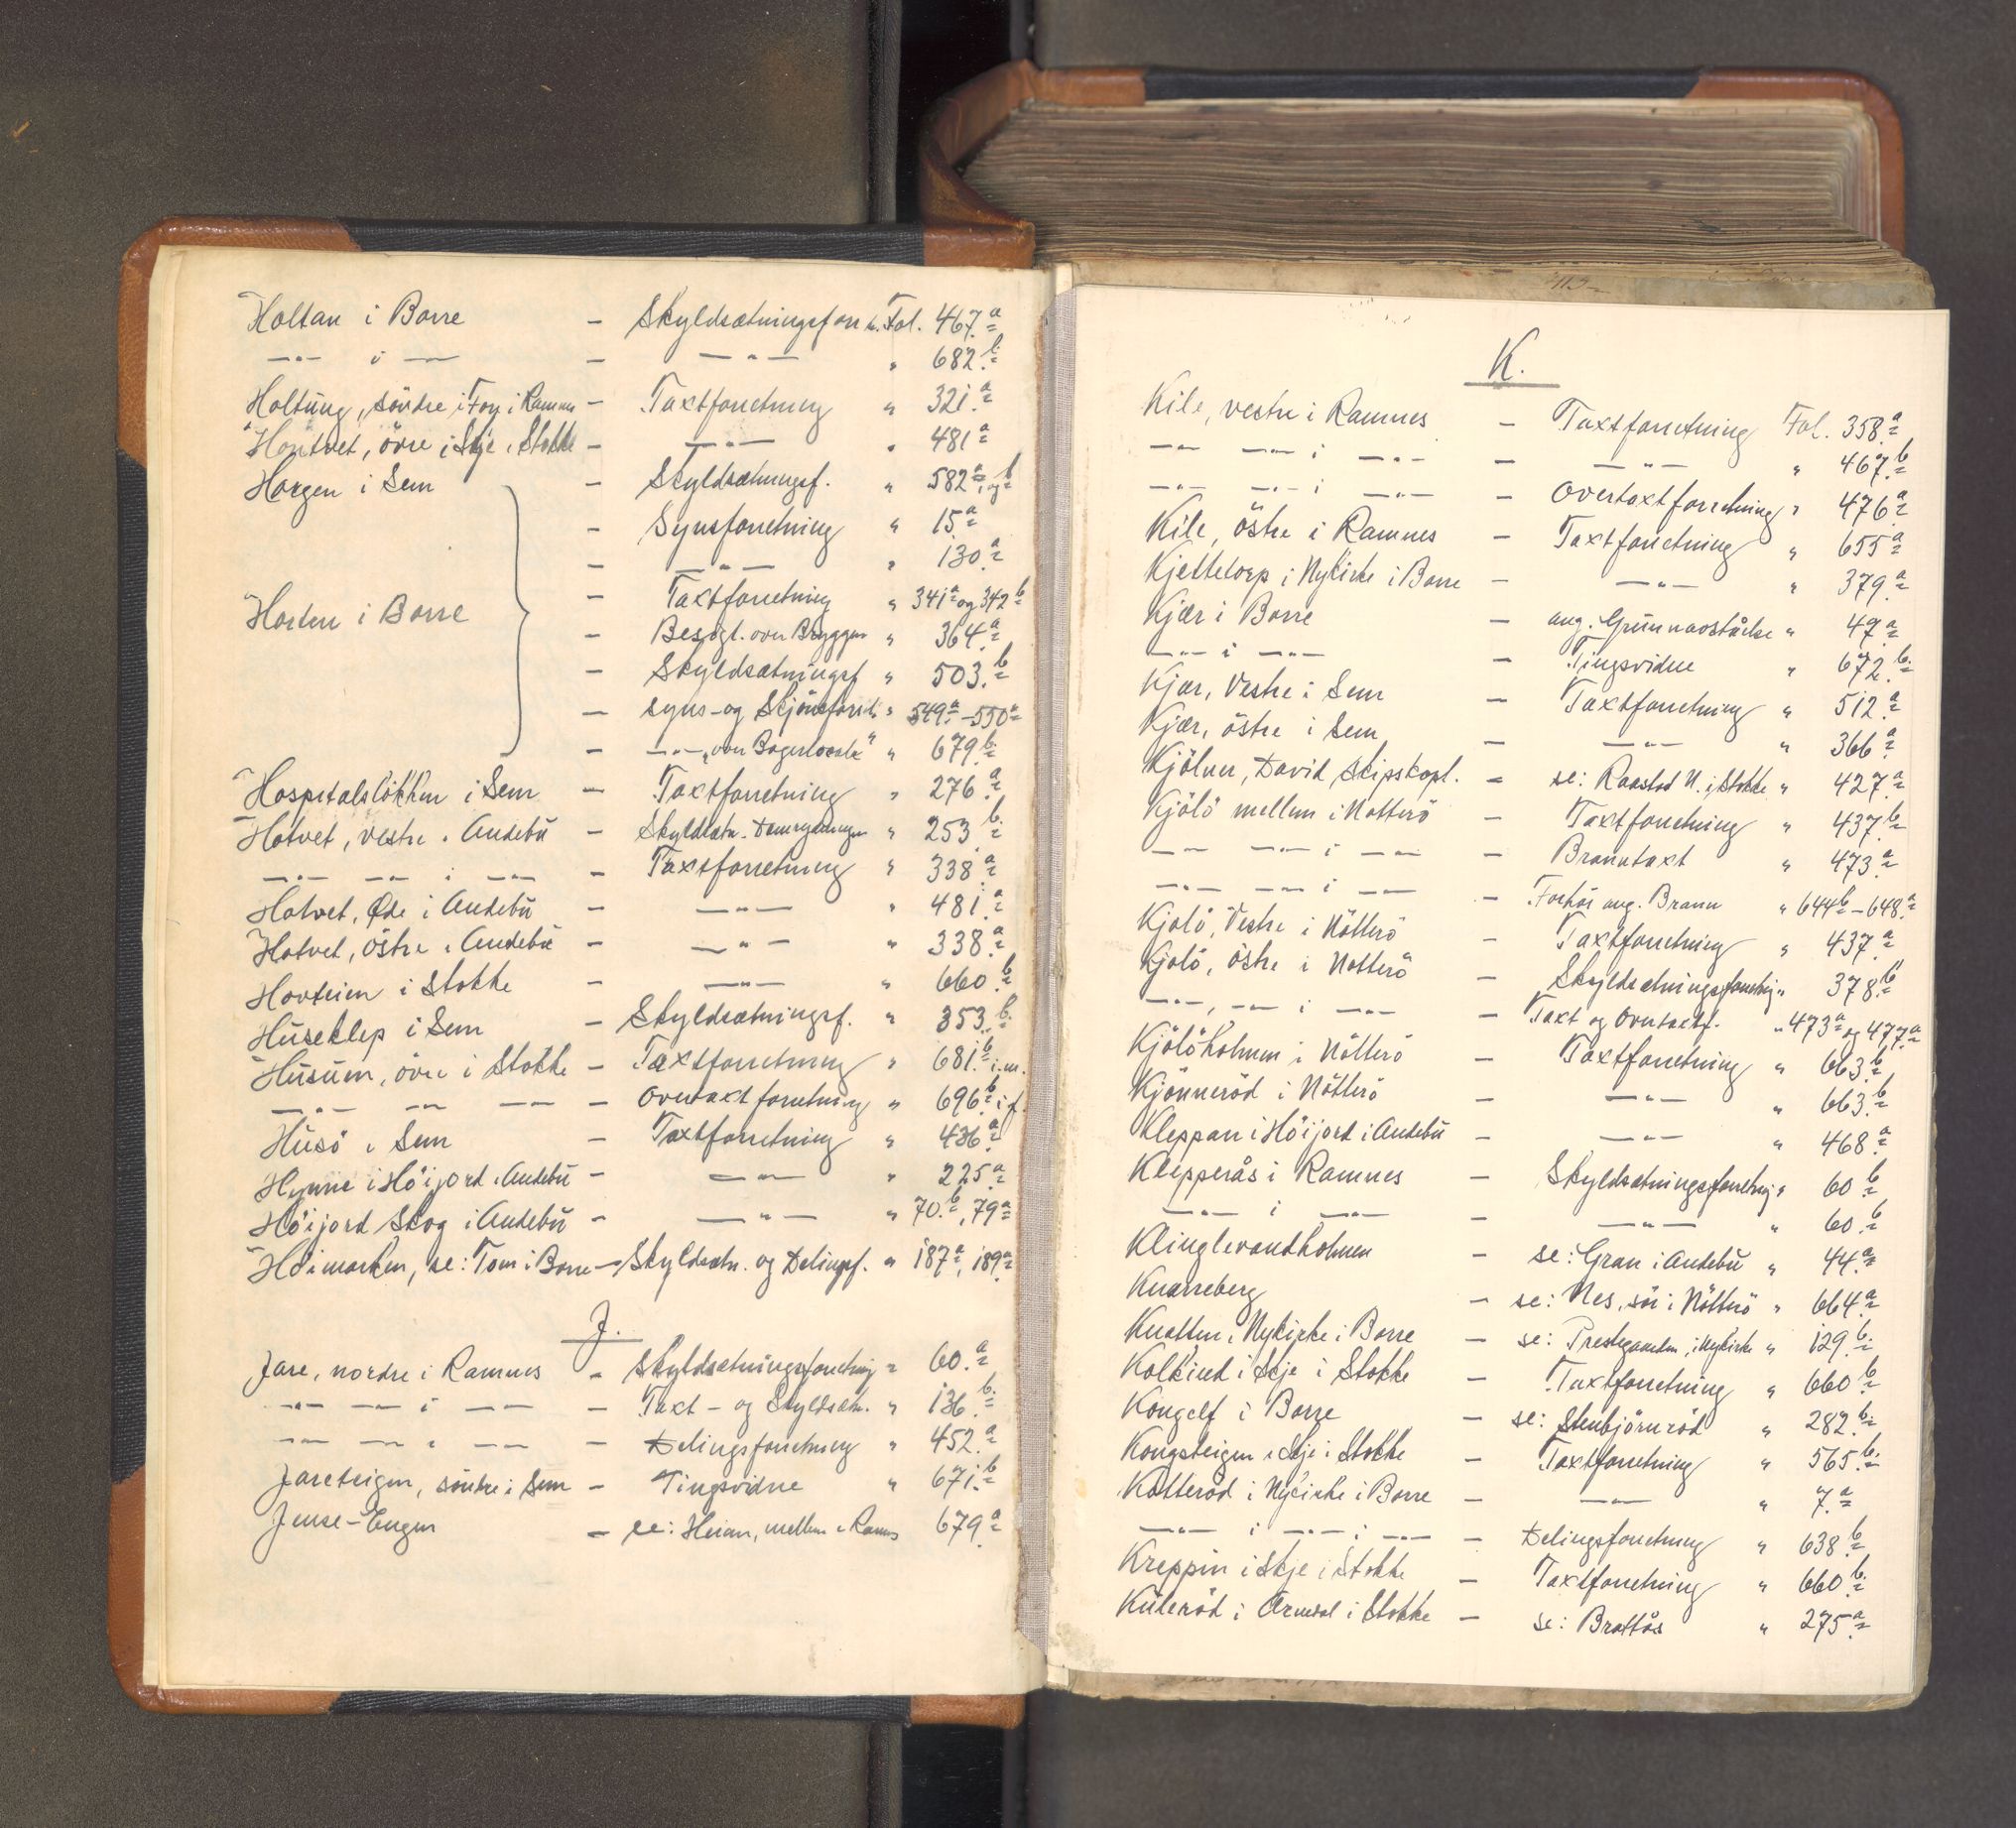 Holtan i Borre - Skyldsætningsforr. Fol. 467.a
—„— i — - —„— „ 682.b
Holtung, söndre i Fon i Ramnes - Taxtforretning „ 321.a
Hontvet, övre i Skje i Stokke - —„— „ 481.a
Horgen i Sem - Skyldsætningsf. „ 582.a og b
- Synsforretning „ 15.a
- —„— „ 130.a
Horten i Borre - Taxtforretning „ 341.a og 342.b
- Besigt. over Bryggen „ 364.a
- Skyldsætningsf. „ 503.b
- Syns- og Skjönsforr. „ 549.a - 550.a
- —„— „over Bagerlocale" „ 679.b
Hospitalslökken i Sem - Taxtforretning „ 276.a
Hotvet, vestre i Andebu - Skyldsætn. „ 253.b
—„— —„— i —„— - Taxtforretning „ 338.a
Hotvet, Øde i Andebu - —„— „ 481.a
Hotvet, östre i Andebu - —„— „ 338.a
Hovteien i Stokke - —„— „ 660.b
Huseklep i Sem - Skyldsætningsf. „ 353.b
Husum, övre i Stokke - Taxtforretning „ 681.b i.m.
—„— —„— —„— - Overtaxtforretning „ 696.b i f.
Husö i Sem - Taxtforretning „ 436.a
Hynne i Höijord i Andebu - —„— „ 225.a
Höijord Skog i Andebu - —„— „ 70.b, 79.a
Höimarken, se: Tom i Borre - Skyldsætn. og Delingsf. „ 187.a, 189.a
J.
Jare, nordre i Ramnes - Skyldsætningsforretning „ 60.a
—„— —„— i —„— - Taxt- og Skyldsætn. „ 136.b
—„— —„— i —„— - Delingsforretning „ 452.a
Jareteigen, söndre i Sem - Tingsvidne „ 671.b
Jense-Engen - se: Heian, mellem i Ramnes 679.a
K.
Kile, vestre i Ramnes - Taxtforretning Fol. 358.a
—„— —„— i —„— - —„— „ 467.b
—„— —„— i —„— - Overtaxtforretning „ 476.a
Kile, östre i Ramnes - Taxtforretning „ 655.a
Kjettetorp i Nykirke i Borre - —„— „ 379.a
Kjær i Borre - ang. Grunnavståelse „ 47.a
—„— i —„— - Tingsvidne „ 672.b
Kjær, Vestre i Sem - Taxtforretning „ 512.a
Kjær, östre i Sem - —„— „ 366.a
Kjölner, David Skipskapt. - se: Raastad N. i Stokke „ 427.a
Kjölö mellem i Nötterö - Taxtforretning „ 437.b
—„— —„— i —„— - Branntaxt „ 473.a
—„— —„— i —„— - Forhör ang. Brann „ 644.b - 648.a
Kjölö, Vestre i Nötterö - Taxtforretning „ 437.a
Kjölö, östre i Nötterö - Skyldsætningsforretning „ 378.b
—„—, —„— i —„— - Taxt og Overtaxtf. „ 473.a og 477.a
Kjölöholmen i Nötterö - Taxtforretning „ 663.b
Kjönneröd i Nötterö - —„— „ 663.b
Kleppan i Höijord i Andebu - —„— „ 468.a
Klepperås i Ramnes - Skyldsætningsforretning „ 60.b
—„— i —„— - —„— „ 60.b
Klinglevandholmen - se: Gran i Andebu „ 44.a
Knarreberg - se: Nes, sör i Nötterö „ 664.a
Knatten i Nykirke i Borre - se: Prestegaarden i Nykirke „ 129.b
Kolkind i Skje i Stokke - Taxtforretning „ 660.b
Kongelf i Borre - se: Stenbjörnröd „ 282.b
Kongsteigen i Skje i Stokke - Taxtforretning „ 565.b
Kotteröd i Nykirke i Borre - —„— „ 7.a
—„— i —„— i —„— - Delingsforretning „ 638.b
Kreppin i Skje i Stokke - Taxtforretning „ 660.b
Kuleröd i Arnedal i Stokke - se: Brattås „ 275.a